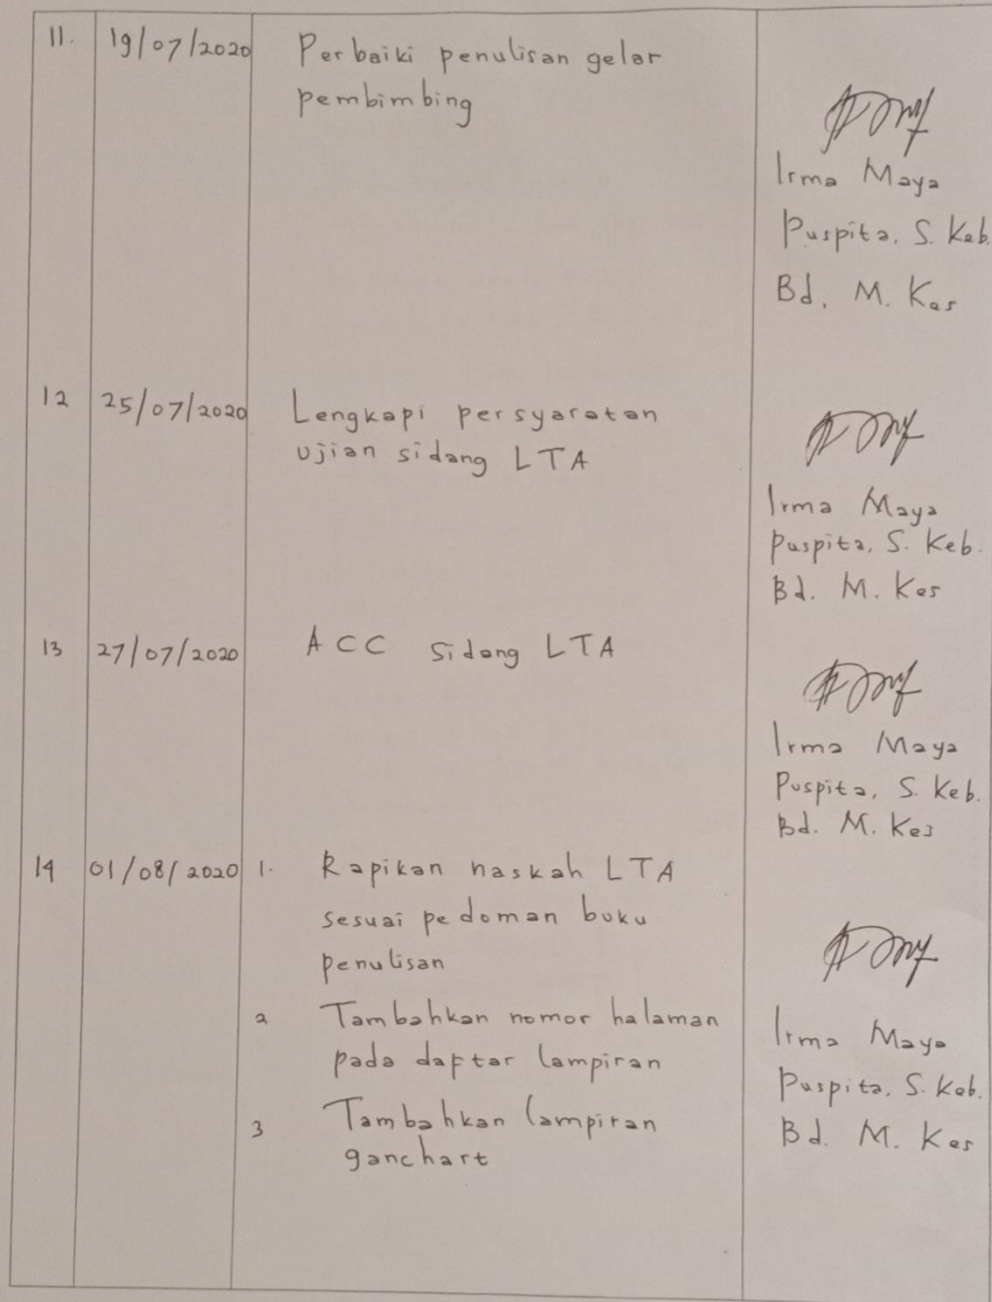 11. 19/07/2020 Perbaiki penulisan gelar
pembimbing
Irma Maya
Puspita, S. Keb.
Bd. M. Kes
12 25/07/2020 Lengkapi persyaratan
ujian sidang LTA
Irma Maya
Puspita, S. Keb.
Bd. M. Kes
13 27/07/2020 ACC Sidang LTA
Irma Maya
Puspita, S. Keb.
Bd. M. Kes
14 01/08/2020 1. Rapikan naskah LTA
sesuai pedoman buku
penulisan
2 Tambahkan nomor halaman
pada daftar lampiran
3 Tambahkan lampiran
ganchart
Irma Maya
Puspita, S. Keb.
Bd. M. Kes